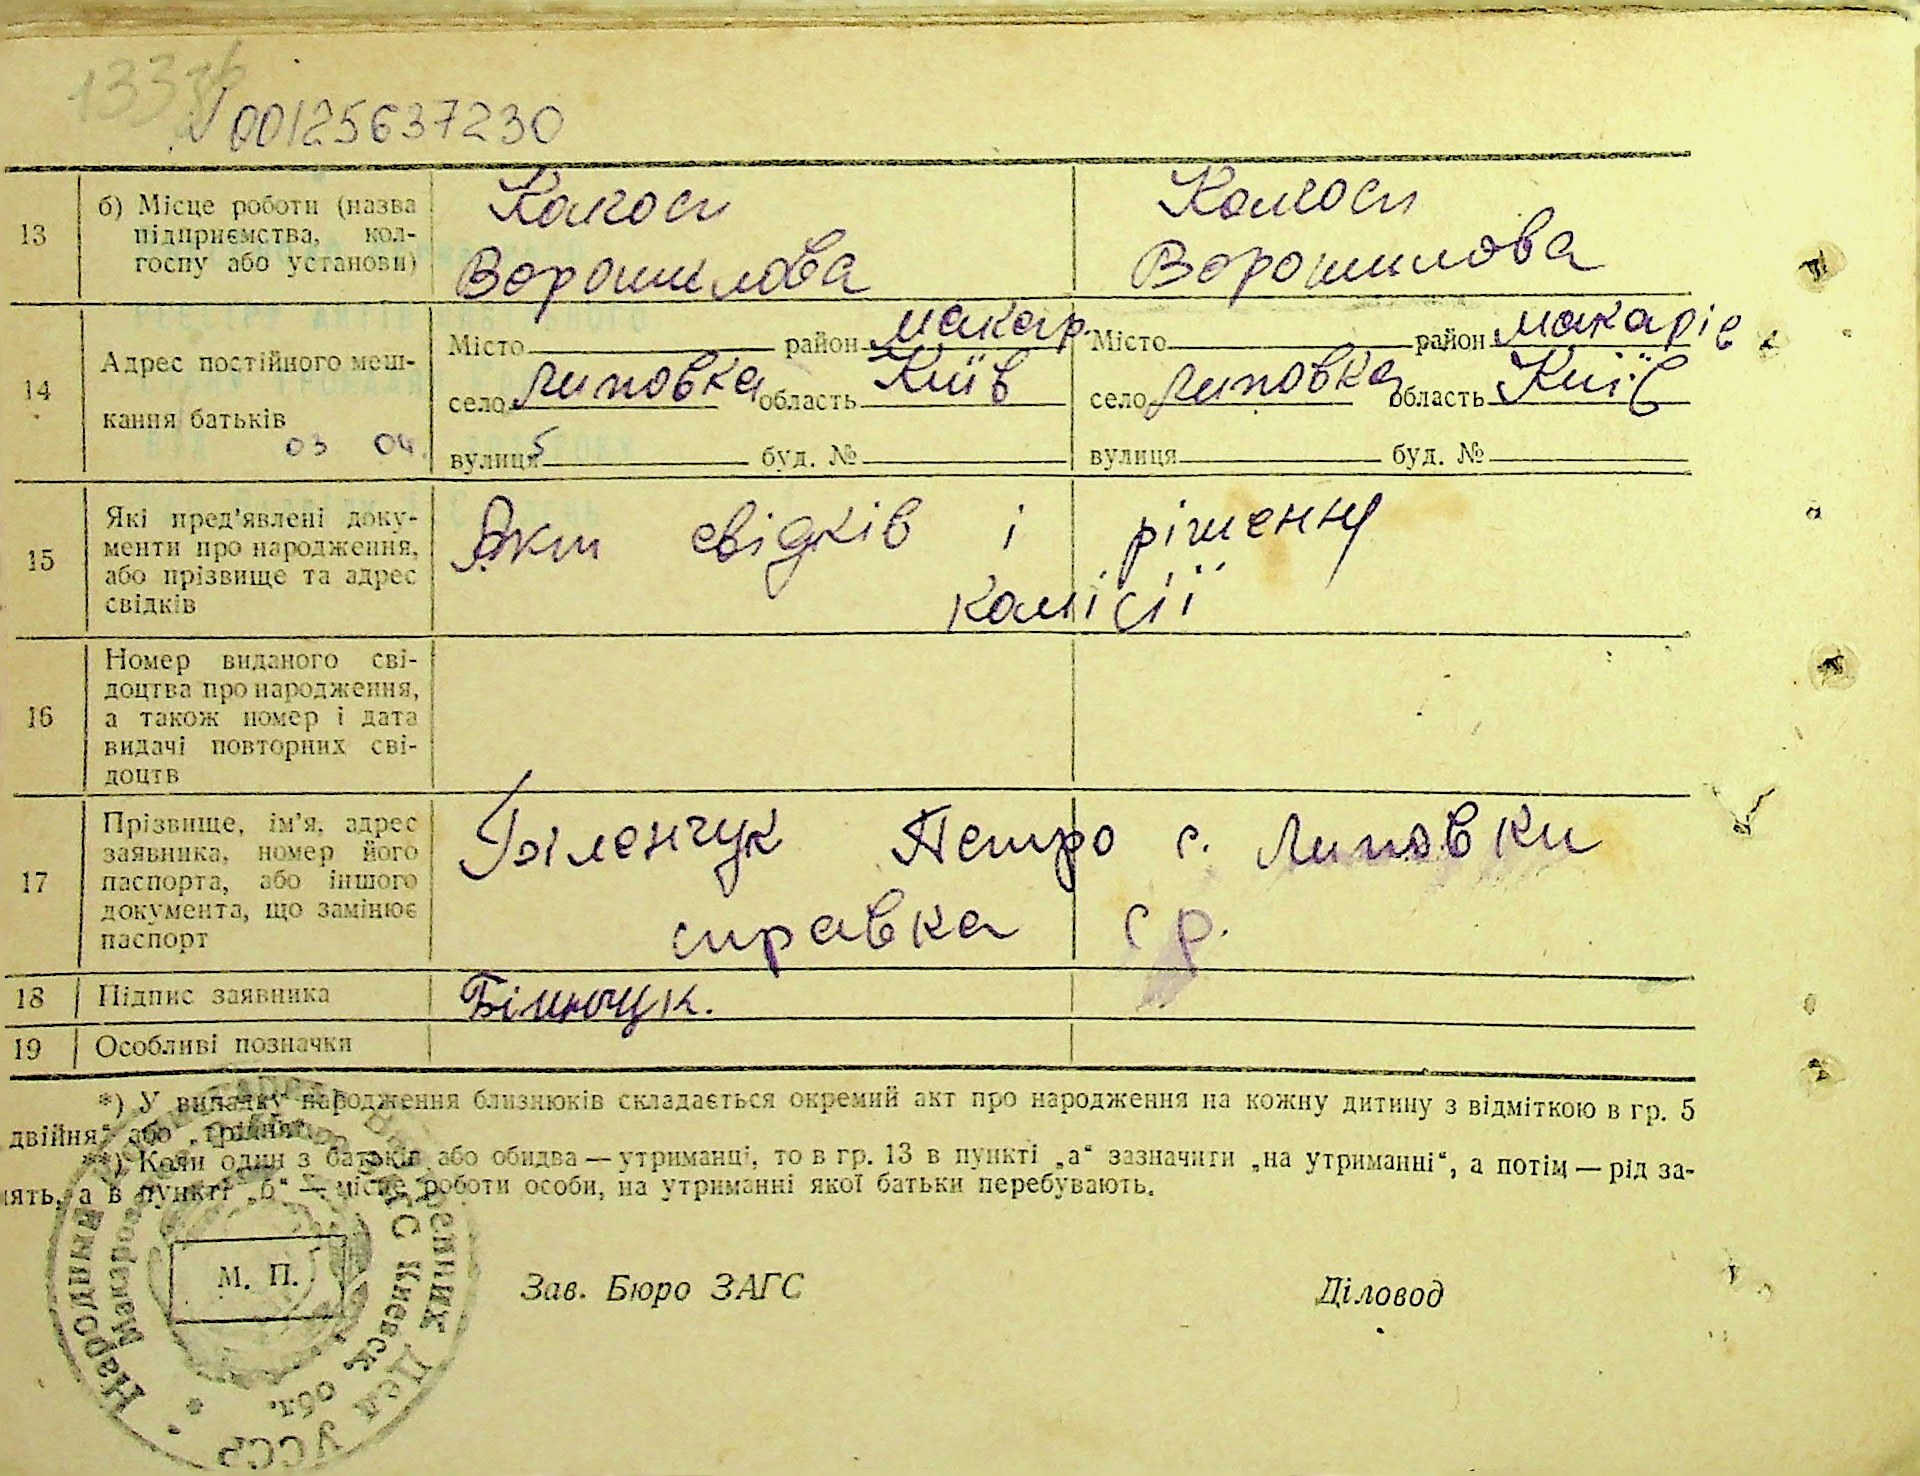 133 зв
V 00125637230
13 б) Місце роботи (назва підприємства, колгоспу або установи)
Колгосп Ворошилова
Колгосп Ворошилова
14 Адрес постійного мешкання батьків
03 04
Місто район Макар.
село Липовка область Київ
вулиця 5 буд. №
Місто район Макарів
село Липовка область Київ
вулиця буд. №
15 Які пред'явлені документи про народження, або прізвище та адрес свідків
Акт свідків і рішення
комісії
16 Номер виданого свідоцтва про народження, а також номер і дата видачі повторних свідоцтв
17 Прізвище, ім'я, адрес заявника, номер його паспорта, або іншого документа, що замінює паспорт
Біленчук Петро с. Липовки
справка с р.
18 Підпис заявника
Біленчук.
19 Особливі позначки
*) У випадку народження близнюків складається окремий акт про народження на кожну дитину з відміткою в гр. 5
двійня“ або „трійня“.
**) Коли один з батьків або обидва — утриманці, то в гр. 13 в пункті „а“ зазначити „на утриманні“, а потім — рід за-
нять, а в пункті „б“ — місце роботи особи, на утриманні якої батьки перебувають.
М. П.
Зав. Бюро ЗАГС
Діловод
Народный Комиссариат Внутренних Дел УССР
ЗАГС Киевск. обл.